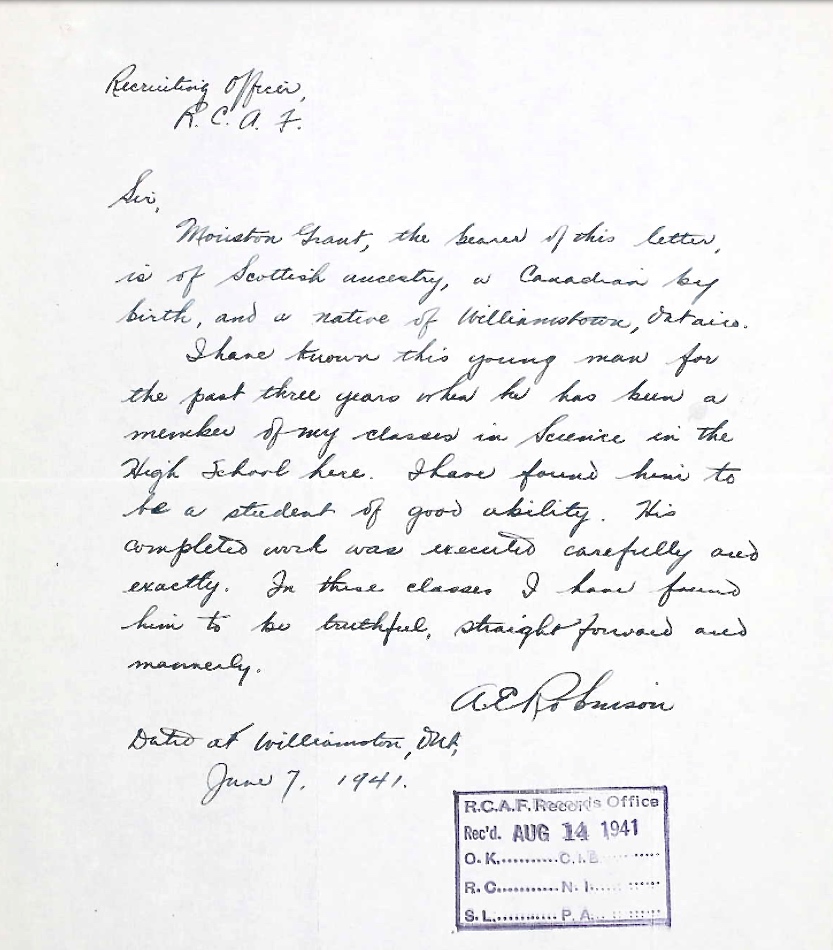 Recruiting Officer,
R. C. A. F.
Sir,
Grant, the bearer of this letter,
is of Scottish ancestry, a Canadian by
birth, and a native of Williamstown, Ontario.
I have known this young man for
the past three years when he has been a
member of my classes in Science in the
High School here. I have found him to
be a student of good ability. His
completed work was executed carefully and
exactly. In these classes I have found
him to be truthful, straightforward and
mannerly.
A.E. Robinson
Dated at Williamston, Ont,
June 7, 1941.
R.C.A.F. Records Office
Rec'd. AUG 14 1941
O.K..........C.I.B.
R.C...........N.I.
S.L...........P.A.